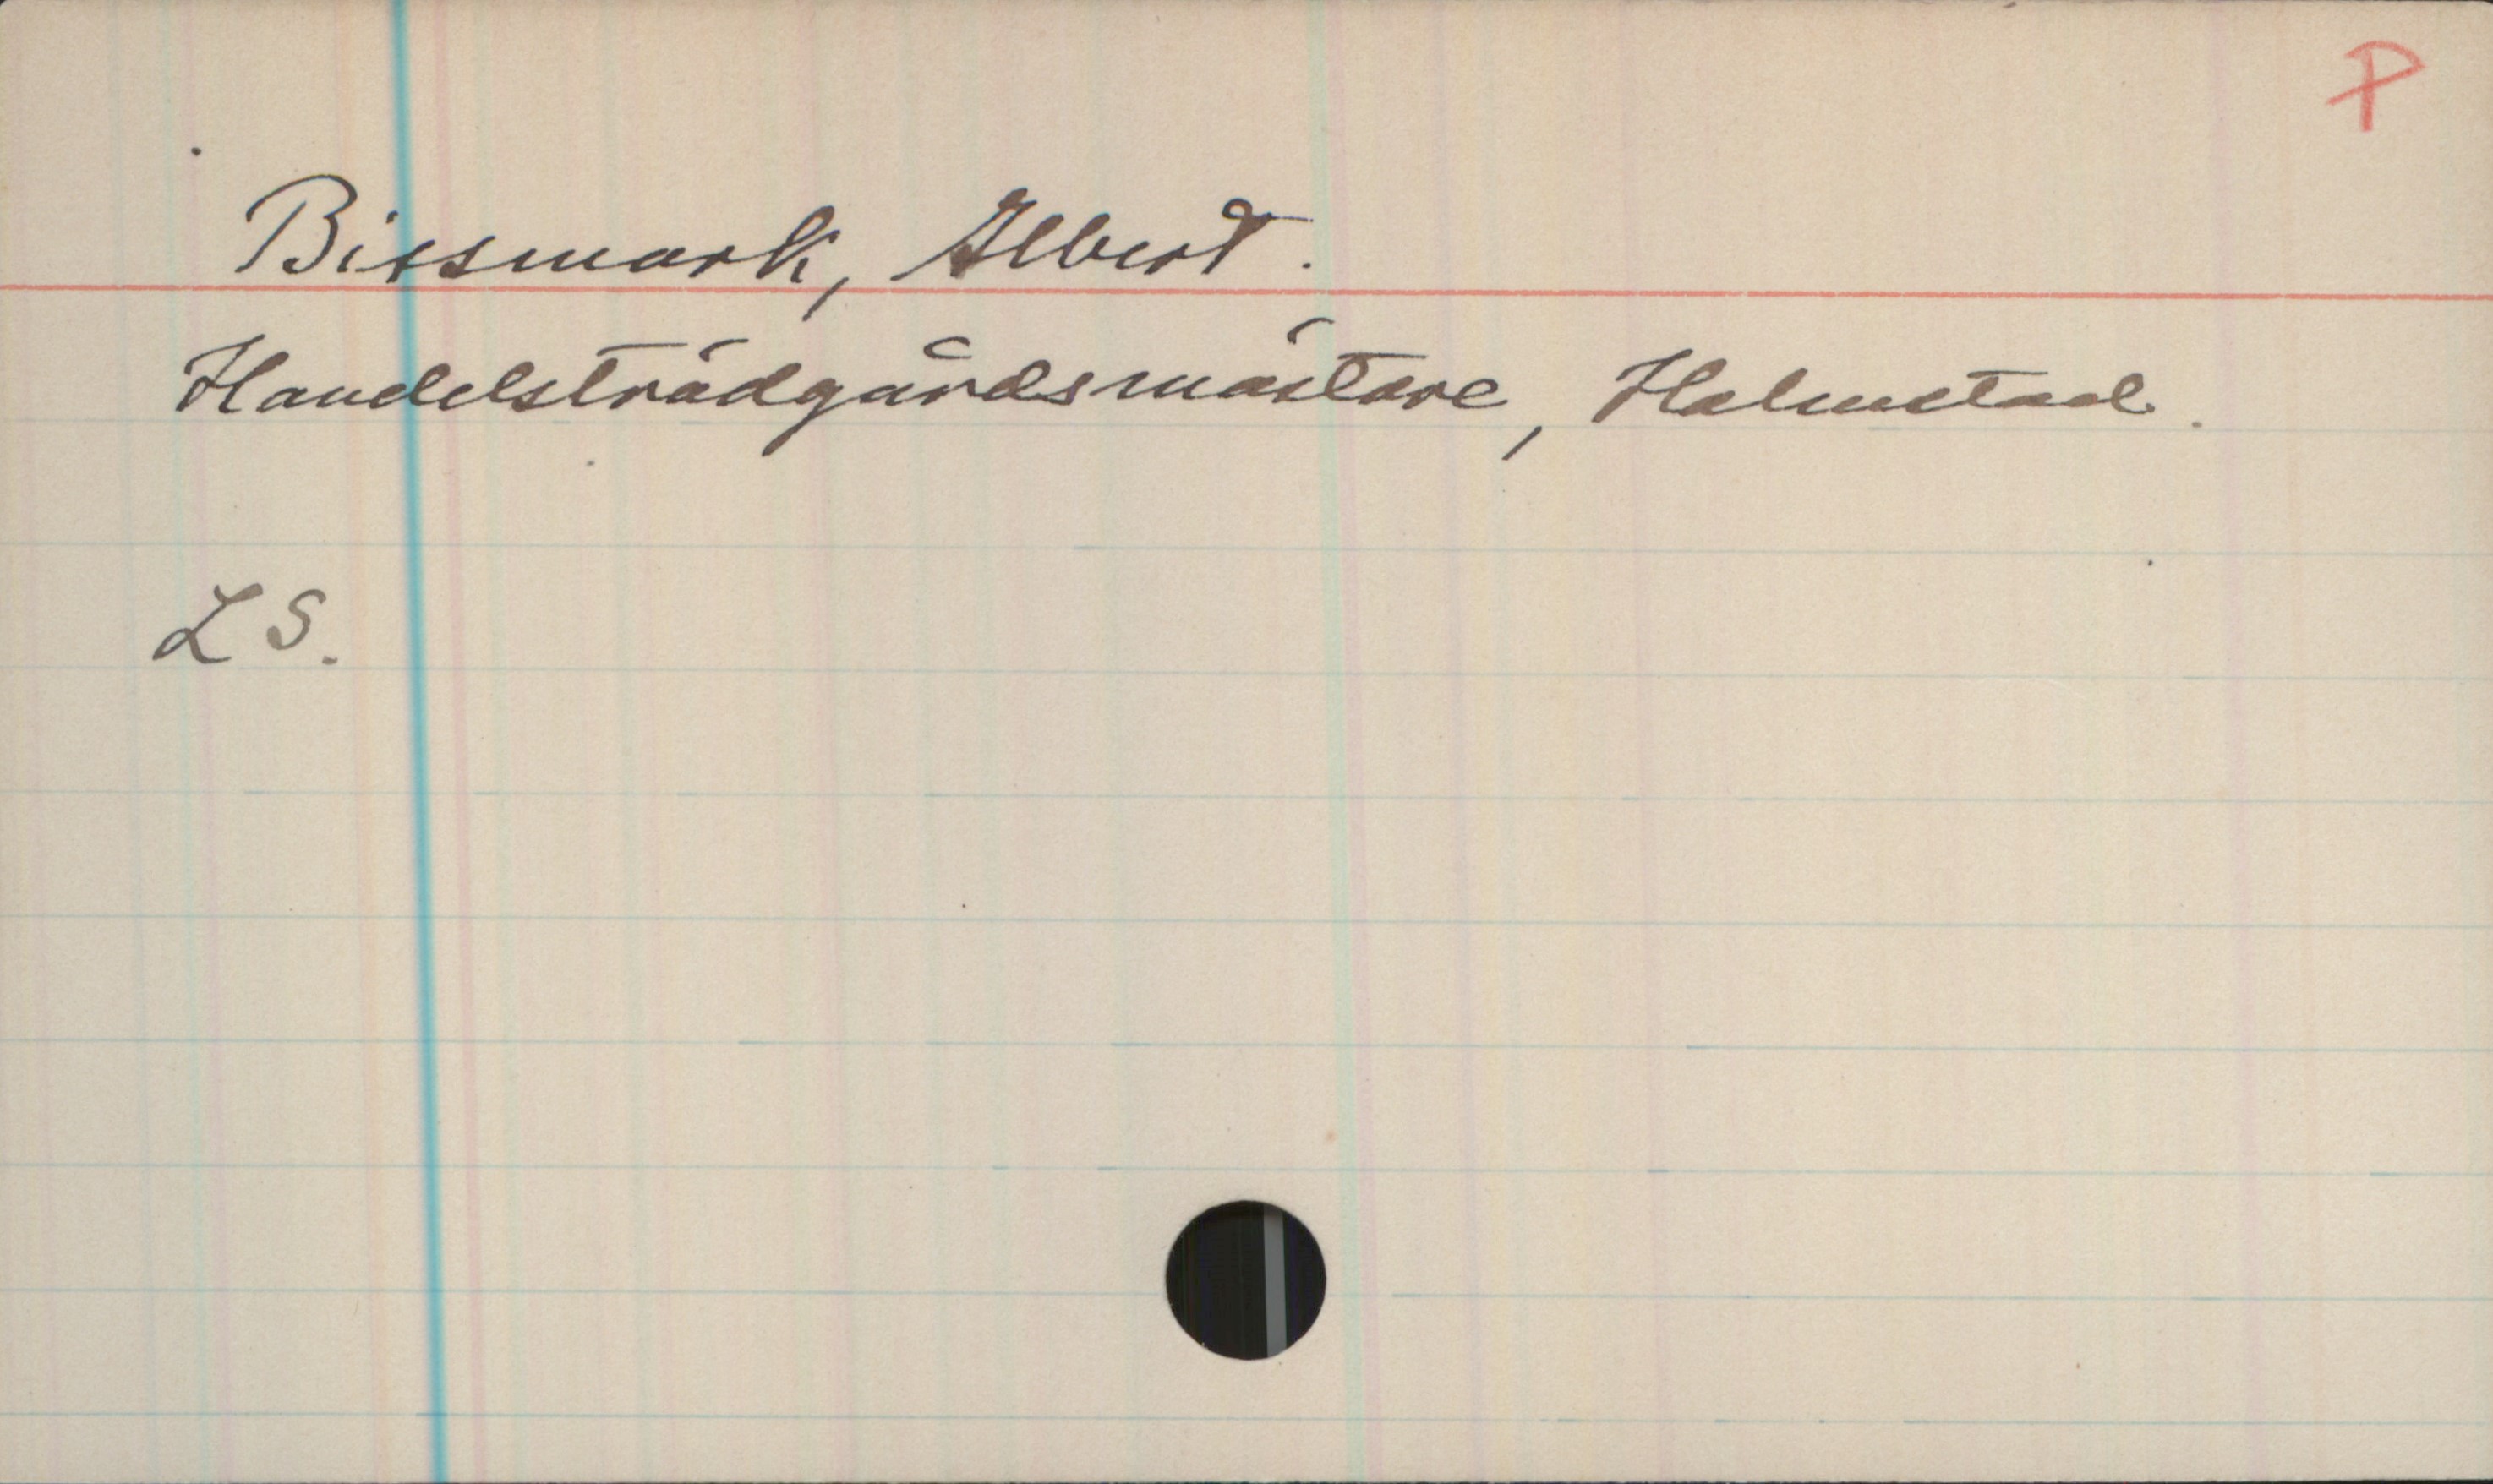 P
Bissmark, Albert.
Handelsträdgårdsmästare, Halmstad.
LS.